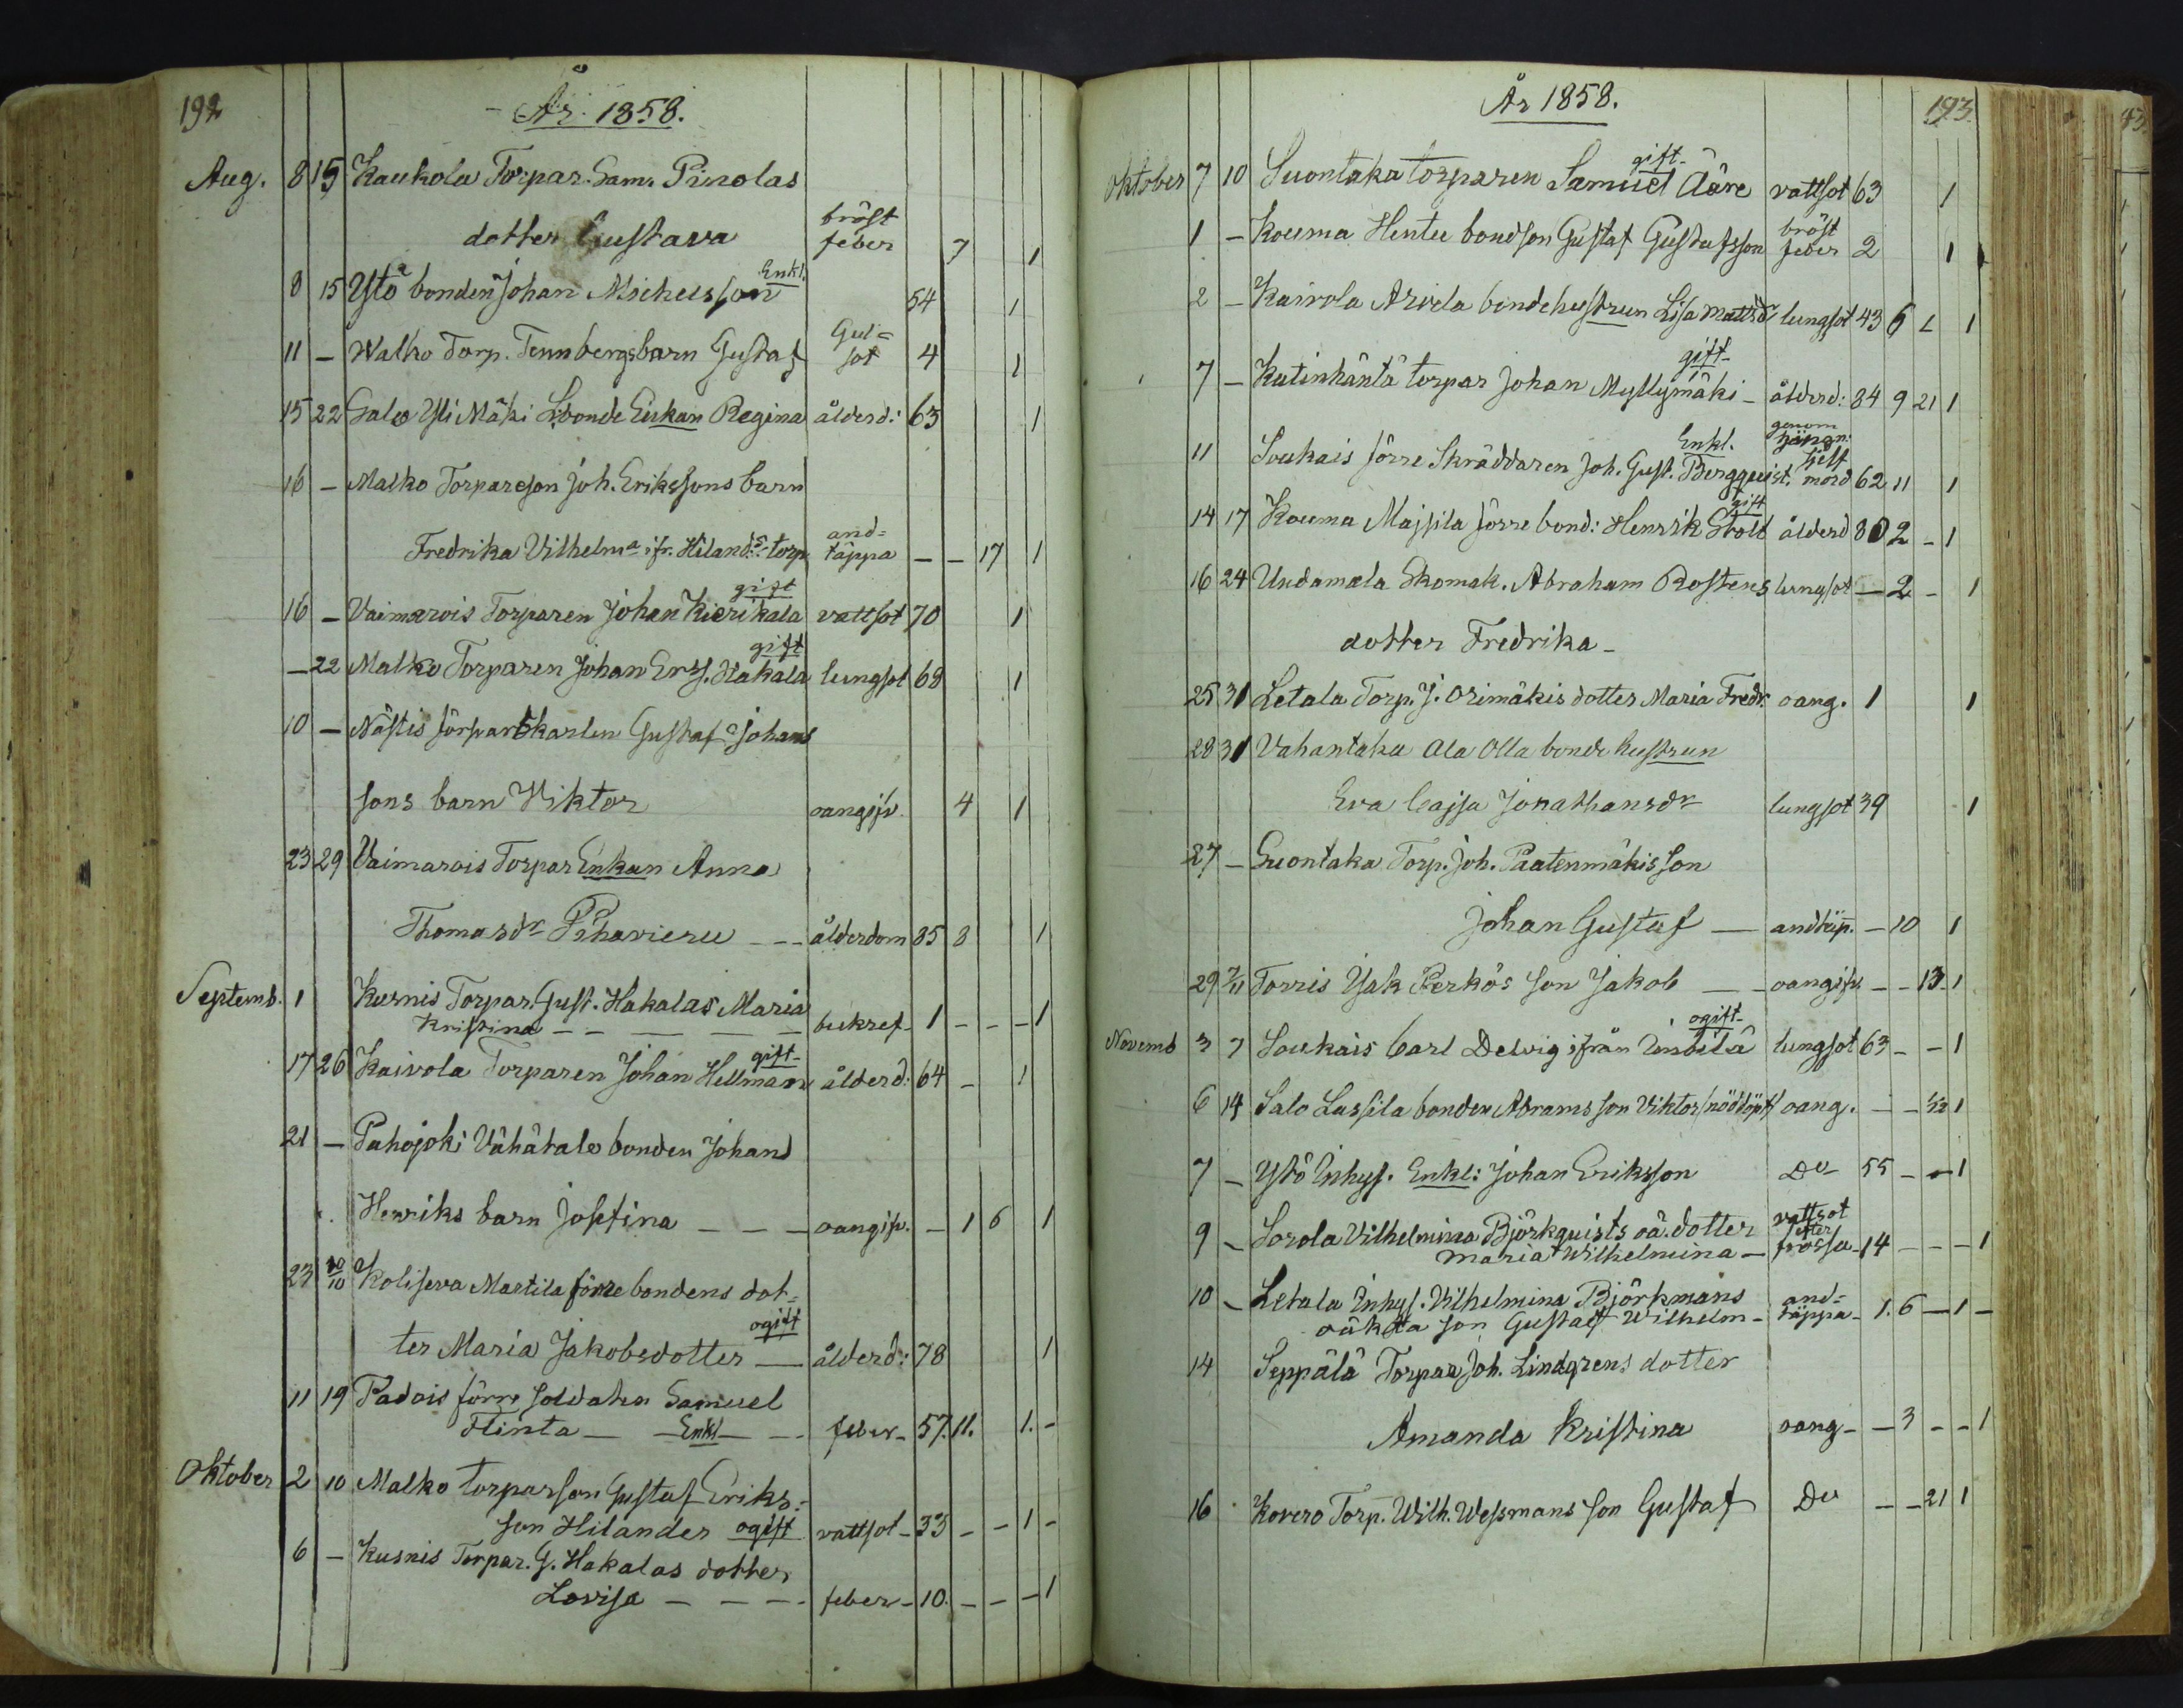 192
År 1858.
Aug. 8 15 Kaukola Torpar. Sam. Pinolas
dotter Gustava bröst feber 7 1
8 15 Ytö bonden Johan Michelsson Enkl. 54 1
11 — Walko Torp. Tennbergs barn Gustaf Gul= sot 4 1
15 22 Salo Yli Mäki Lbonde Enkan Regina ålderd: 63 1
16 — Malko Torpareson Joh. Erikssons barn
Fredrika Vilhelma ifr. Hiland:s torp and= täppa — — 17 1
16 — Vaimarois Torparen Johan Kierikala gift vattsot 70 1
— 22 Malko Torparen Johan Ers. Hakala gift lungsot 68 1
10 — Nästis Torpar karlen Gustaf Johans
sons barn Viktor oangifv. 4 1
23 29 Vaimarois Torpar Enkan Anna
Thomasdr Pihavieru — — ålderdom 85 8 1
Septemb. 1 Kurnis Torpar Gust. Hakalas Maria
Kristina — — — — — bukref — 1 — — — 1
17 26 Kaivola Torparen Johan Hellman gift ålderd: 64 — 1
21 — Pahojoki Vähätalo bonden Johan
Henriks barn Josefina — — — oangifv. — 1 6 1
23 10/10 Koliseva Martila förre bondens dot=
ter Maria Jakobsdotter ogift — ålderd: 78 1
11 19 Padois förre soldaten Samuel
Flinta — — Enkl — — feber — 57. 11. 1. —
Oktober 2 10 Malko torparson Gustaf Eriks=
son Hilander ogift vattsot — 33 — — 1 —
6 — Kusnis Torpar. G. Hakalas dotter
Lovisa — — — feber — 10. — — — 1
193
År 1858.
Oktober 7 10 Suontaka torparen Samuel Ääre gift vattsot 63 1
1 — Kouma Hentu bondson Gustaf Gustafsson bröst feber 2 1
2 — Kaivola Arvela bondehustrun Lisa Mattsdr lungsot 43 6 1
7 — Katinhäntä torpar Johan Myllymäki gift — ålderd: 84 9 21 1
11 Soukais förre Skräddaren Joh. Gust. Bergquist. Enkl. genom hängn: sjelf mord 62 11 1
14 17 Kouma Majsila förre bond: Henrik Stolt gift ålderd 80 2 — 1
16 24 Undamala Skomak. Abraham Rostens lungsot — 2 — 1
dotter Fredrika —
25 31 Letala Torp. J. Orimäkis dotter Maria Fredr. oang. 1 1
28 31 Vahantaka Ala Olla bonde hustrun
Eva Cajsa Jonathansdr lungsot 39 1
27 — Suontaka Torp. Joh. Paatenmäkis son
Johan Gustaf — andtäp. — 10 1
29 7/11 Torris Isak Perkös son Jakob — — oangifv. — — 13 1
Novemb 3 7 Soukais Carl Delvig ifrån ogift lungsot 63 — — 1
6 14 Salo Lassila bonden Abrams son Viktor (nöddöpt) oang. — — 1/2 1
7 — Ytö Inhys. Enkl: Johan Eriksson Do 55 — — 1
9 — Sorola Vilhelmina Björkquists oä. dotter vattsot efter
Maria Wilhelmina — frossa — 14 — — — 1
10 — Letala Inhys. Vilhelmina Björkmans and=
oäkta son Gustaf Wilhelm — täppa — 1. 6 — 1 —
14 Seppälä Torpar Joh. Lindgrens dotter
Amanda Kristina oang — — 3 — — 1
16 Kovero Torp. Wilh. Wessmans son Gustaf Do — — 21 1